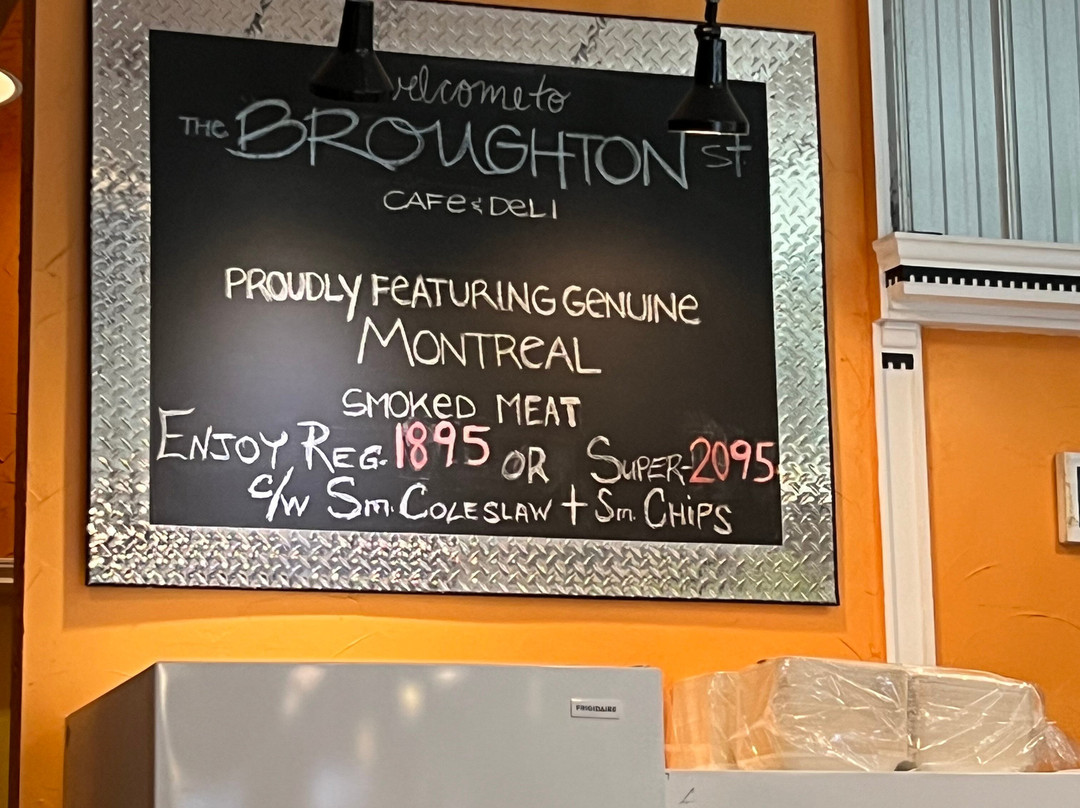 welcome to
THE BROUGHTON ST.
CAFE & DELI
PROUDLY FEATURING GENUINE
MONTREAL
SMOKED MEAT
ENJOY REG. 1895 OR SUPER-2095
c/w Sm. COLESLAW + Sm. CHIPS
FRIGIDAIRE